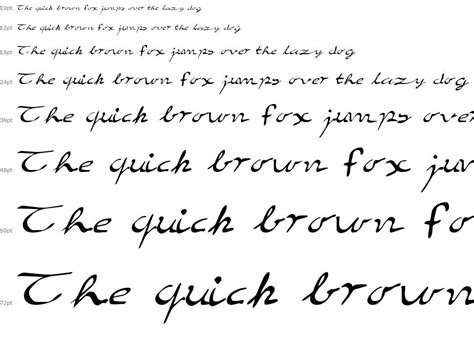 10pt The quick brown fox jumps over the lazy dog
12pt The quick brown fox jumps over the lazy dog
18pt The quick brown fox jumps over the lazy dog
24pt The quick brown fox jumps over the lazy dog
36pt The quick brown fox jumps over
48pt The quick brown fox jum
60pt The quick brown fo
72pt The quick brown